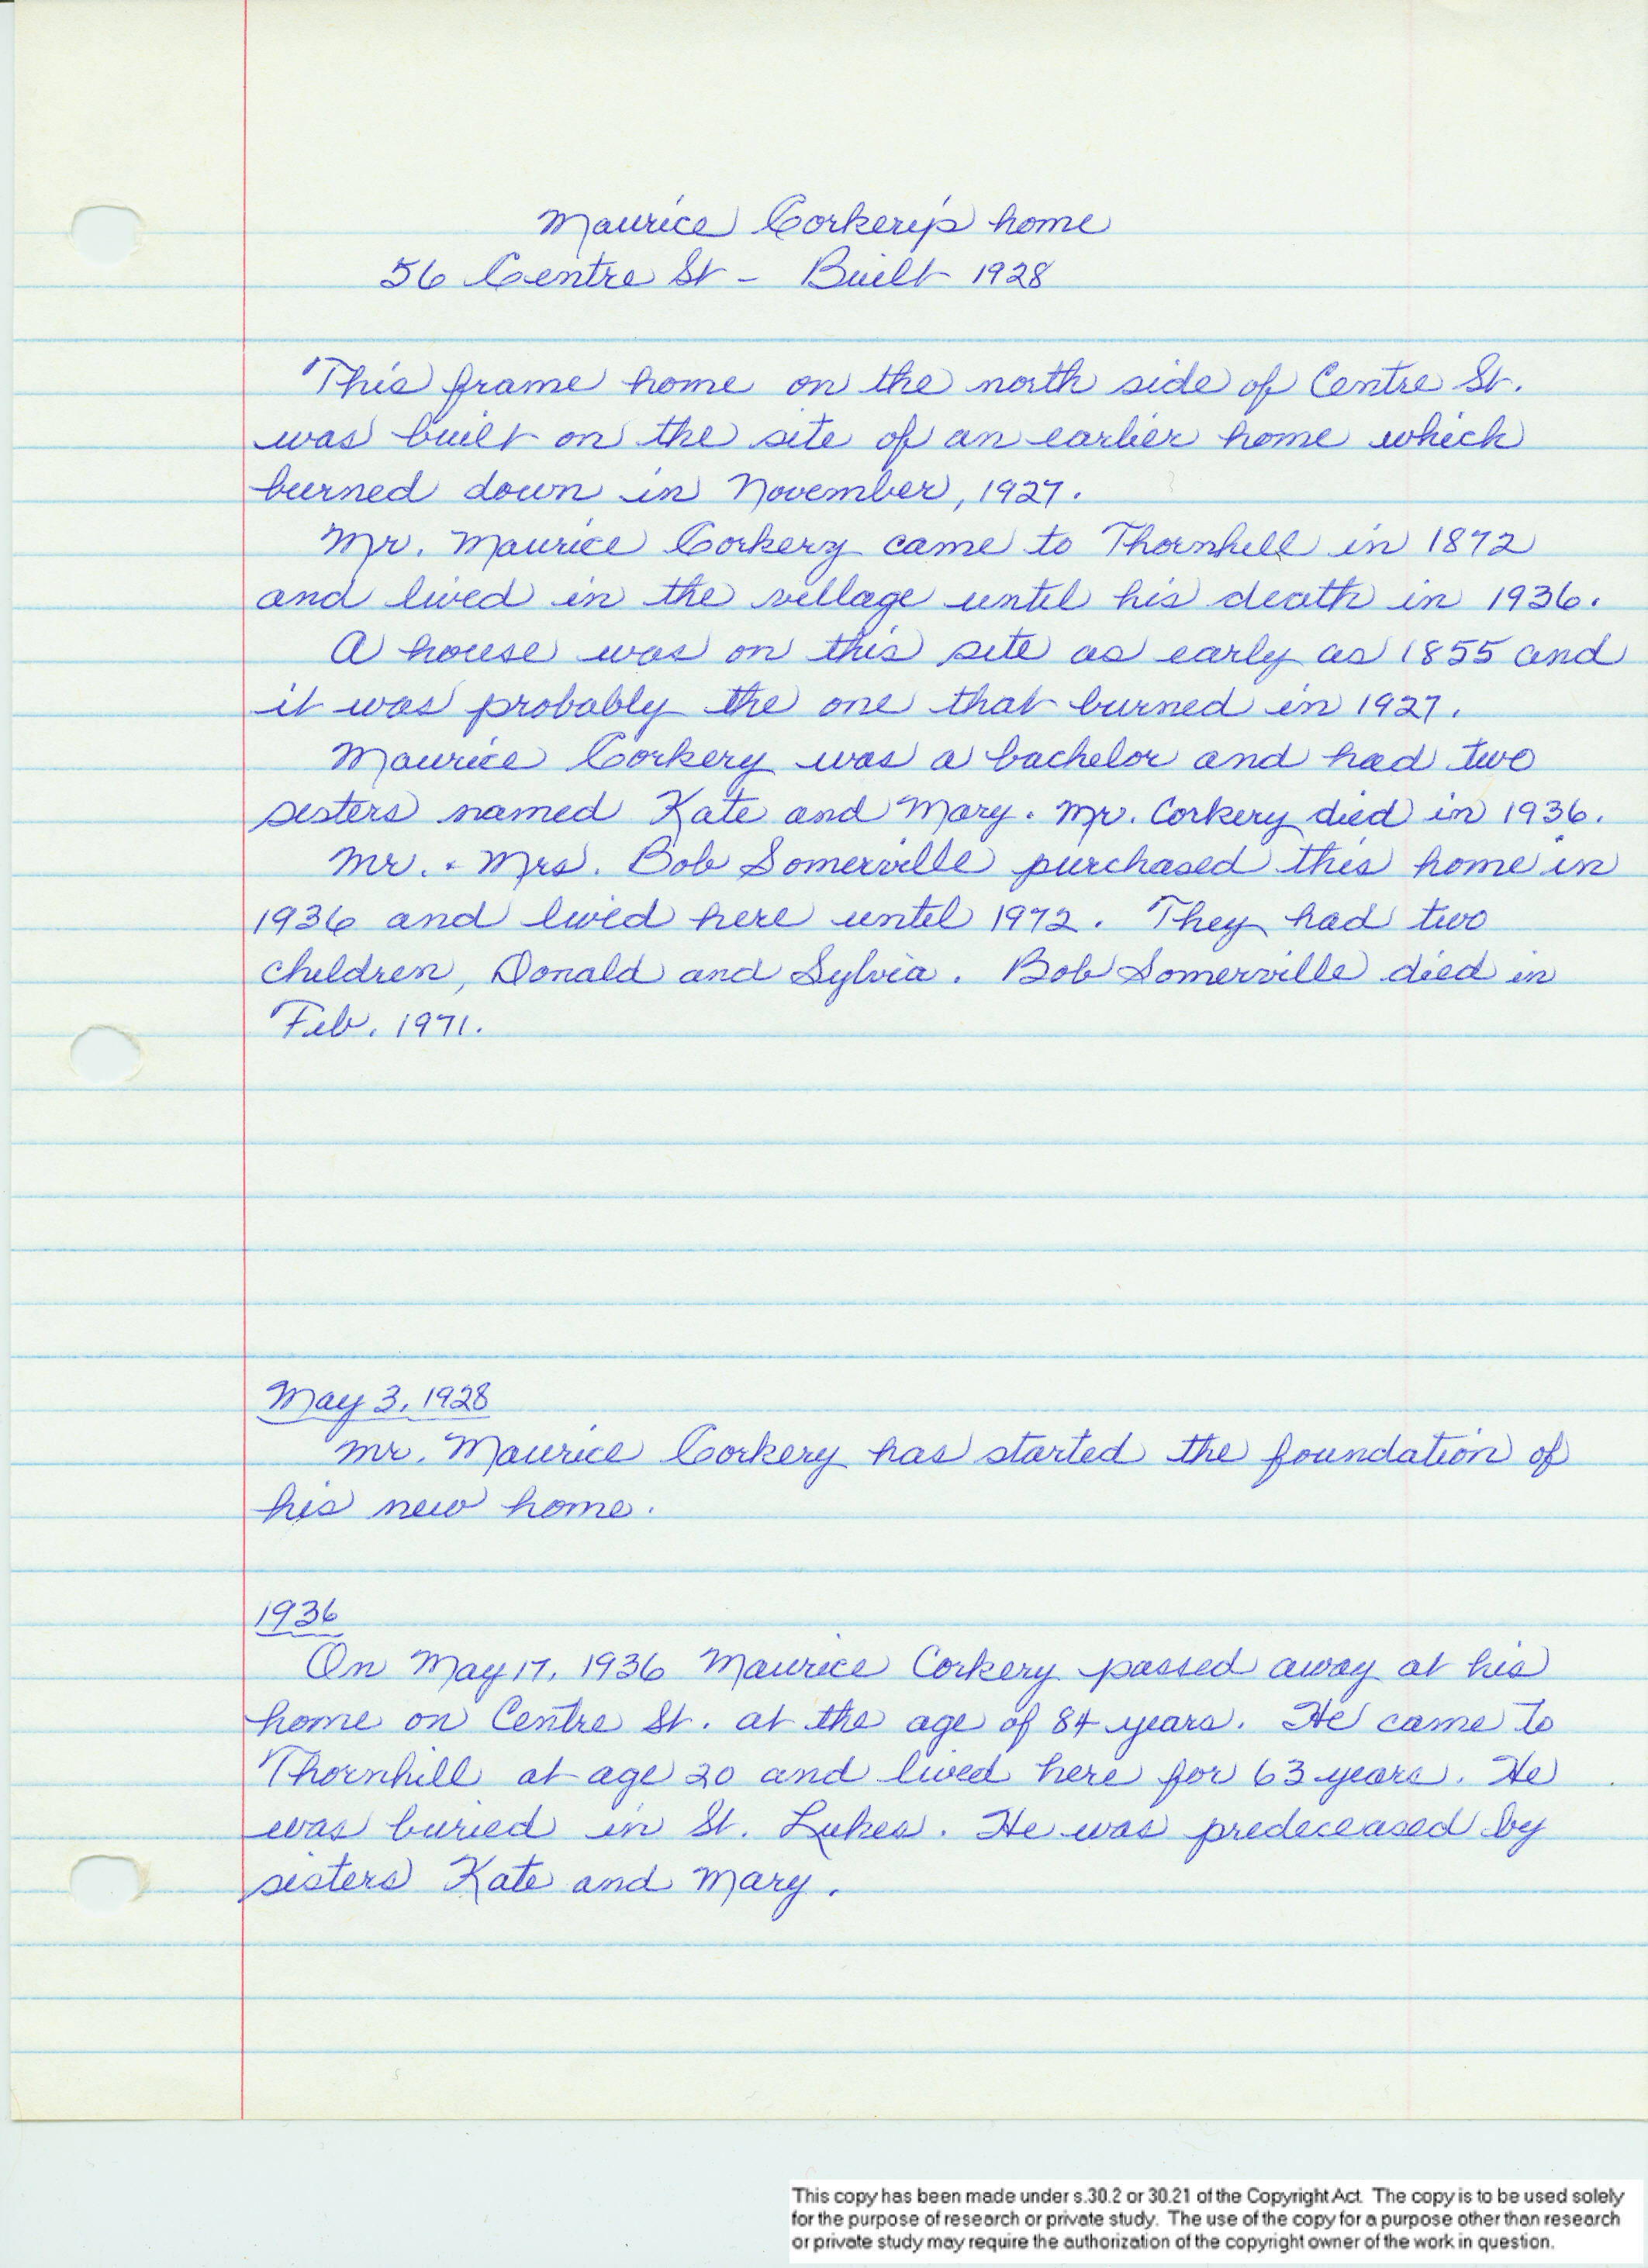 Maurice Corkery's home
56 Centre St - Built 1928
This frame home on the north side of Centre St.
was built on the site of an earlier home which
burned down in November, 1927.
Mr. Maurice Corkery came to Thornhill in 1872
and lived in the village until his death in 1936.
A house was on this site as early as 1855 and
it was probably the one that burned in 1927.
Maurice Corkery was a bachelor and had two
sisters named Kate and Mary. Mr. Corkery died in 1936.
Mr. & Mrs. Bob Somerville purchased this home in
1936 and lived here until 1972. They had two
children, Donald and Sylvia. Bob Somerville died in
Feb. 1971.
May 3, 1928
Mr. Maurice Corkery has started the foundation of
his new home.
1936
On May 17, 1936 Maurice Corkery passed away at his
home on Centre St. at the age of 84 years. He came to
Thornhill at age 20 and lived here for 63 years. He
was buried in St. Lukes. He was predeceased by
sisters Kate and Mary.
This copy has been made under s.30.2 or 30.21 of the Copyright Act. The copy is to be used solely
for the purpose of research or private study. The use of the copy for a purpose other than research
or private study may require the authorization of the copyright owner of the work in question.